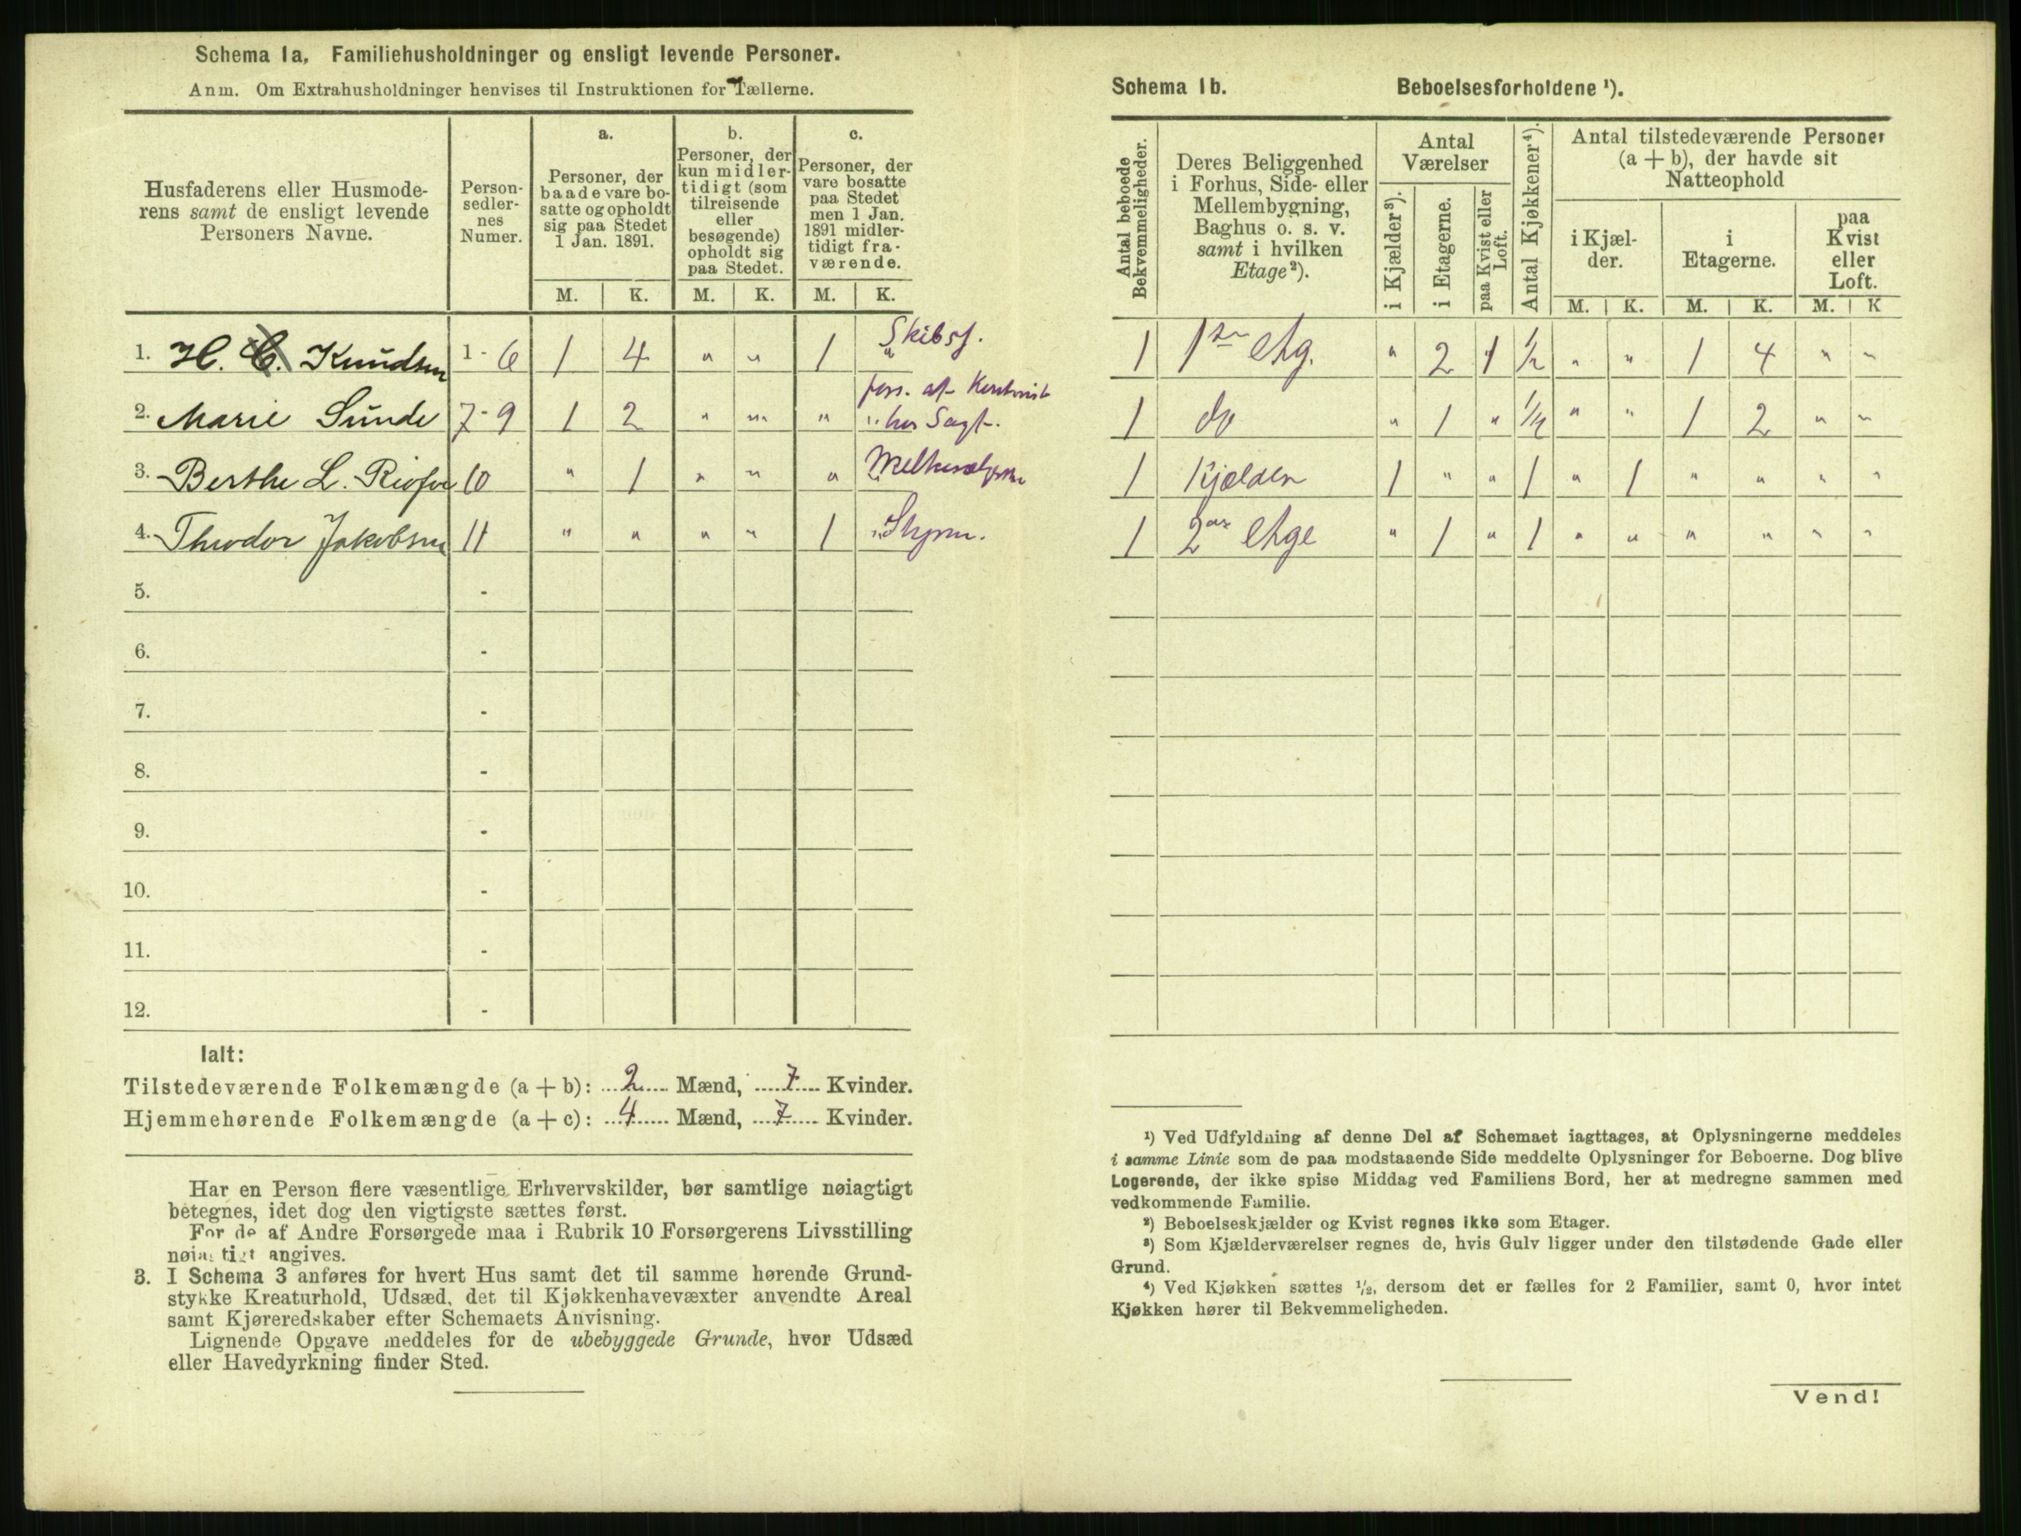 Schema 1a. Familiehusholdninger og ensligt levende Personer.
Anm. Om Extrahusholdninger henvises til Instruktionen for Tællerne.
Husfaderens eller Husmode-
rens samt de ensligt levende
Personers Navne.
Person-
sedler-
nes
Numer.
a.
Personer, der
baade vare bo-
satte og opholdt
sig paa Stedet
1 Jan. 1891.
b.
Personer, der
kun midler-
tidigt (som
tilreisende
eller
besøgende)
opholdt sig
paa Stedet.
c.
Personer, der
vare bosatte
paa Stedet
men 1 Jan.
1891 midler-
tidigt fra-
værende.
M. K. M. K. M. K.
1. H. C. Knudsen 1 - 6 1 4 " " 1 " Skibsf.
2. Marie Sunde 7 - 9 1 2 " " " " fors. af
hos Sagf.
3. Berthe L. 10 " 1 " " " "
4. Theodor Jakobsen 11 " " " " 1 "
5. -
6. -
7. -
8. -
9. -
10. -
11. -
12. -
Ialt:
Tilstedeværende Folkemængde (a + b): 2 Mænd, 7 Kvinder.
Hjemmehørende Folkemængde (a + c): 4 Mænd, 7 Kvinder.
Har en Person flere væsentlige Erhvervskilder, bør samtlige nøiagtigt
betegnes, idet dog den vigtigste sættes først.
For de af Andre Forsørgede maa i Rubrik 10 Forsørgerens Livsstilling
nøiagtigt angives.
3. I Schema 3 anføres for hvert Hus samt det til samme hørende Grund-
stykke Kreaturhold, Udsæd, det til Kjøkkenhavevæxter anvendte Areal
samt Kjøreredskaber efter Schemaets Anvisning.
Lignende Opgave meddeles for de ubebyggede Grunde, hvor Udsæd
eller Havedyrkning finder Sted.
Schema 1b. Beboelsesforholdene ¹).
Antal beboede
Bekvemmeligheder.
Deres Beliggenhed
i Forhus, Side- eller
Mellembygning,
Baghus o. s. v.
samt i hvilken
Etage ²).
Antal
Værelser
i Kjælder ³).
i Etagerne.
paa Kvist eller
Loft.
Antal Kjøkkener ⁴).
Antal tilstedeværende Personer
(a + b), der havde sit
Natteophold
i Kjæl-
der.
i
Etagerne.
paa
Kvist
eller
Loft.
M. K. M. K. M. K
1 1ste Etg. " 2 1 ½ " " 1 4 " "
1 do " 1 " ½ " " 1 2 " "
1 Kjælder 1 " " 1 " 1 " " " "
1 2den Etge " 1 " 1 " " " " " "
¹) Ved Udfyldning af denne Del af Schemaet iagttages, at Oplysningerne meddeles
i samme Linie som de paa modstaaende Side meddelte Oplysninger for Beboerne. Dog blive
Logerende, der ikke spise Middag ved Familiens Bord, her at medregne sammen med
vedkommende Familie.
²) Beboelseskjælder og Kvist regnes ikke som Etager.
³) Som Kjælderværelser regnes de, hvis Gulv ligger under den tilstødende Gade eller
Grund.
⁴) Ved Kjøkken sættes ½, dersom det er fælles for 2 Familier, samt 0, hvor intet
Kjøkken hører til Bekvemmeligheden.
Vend!